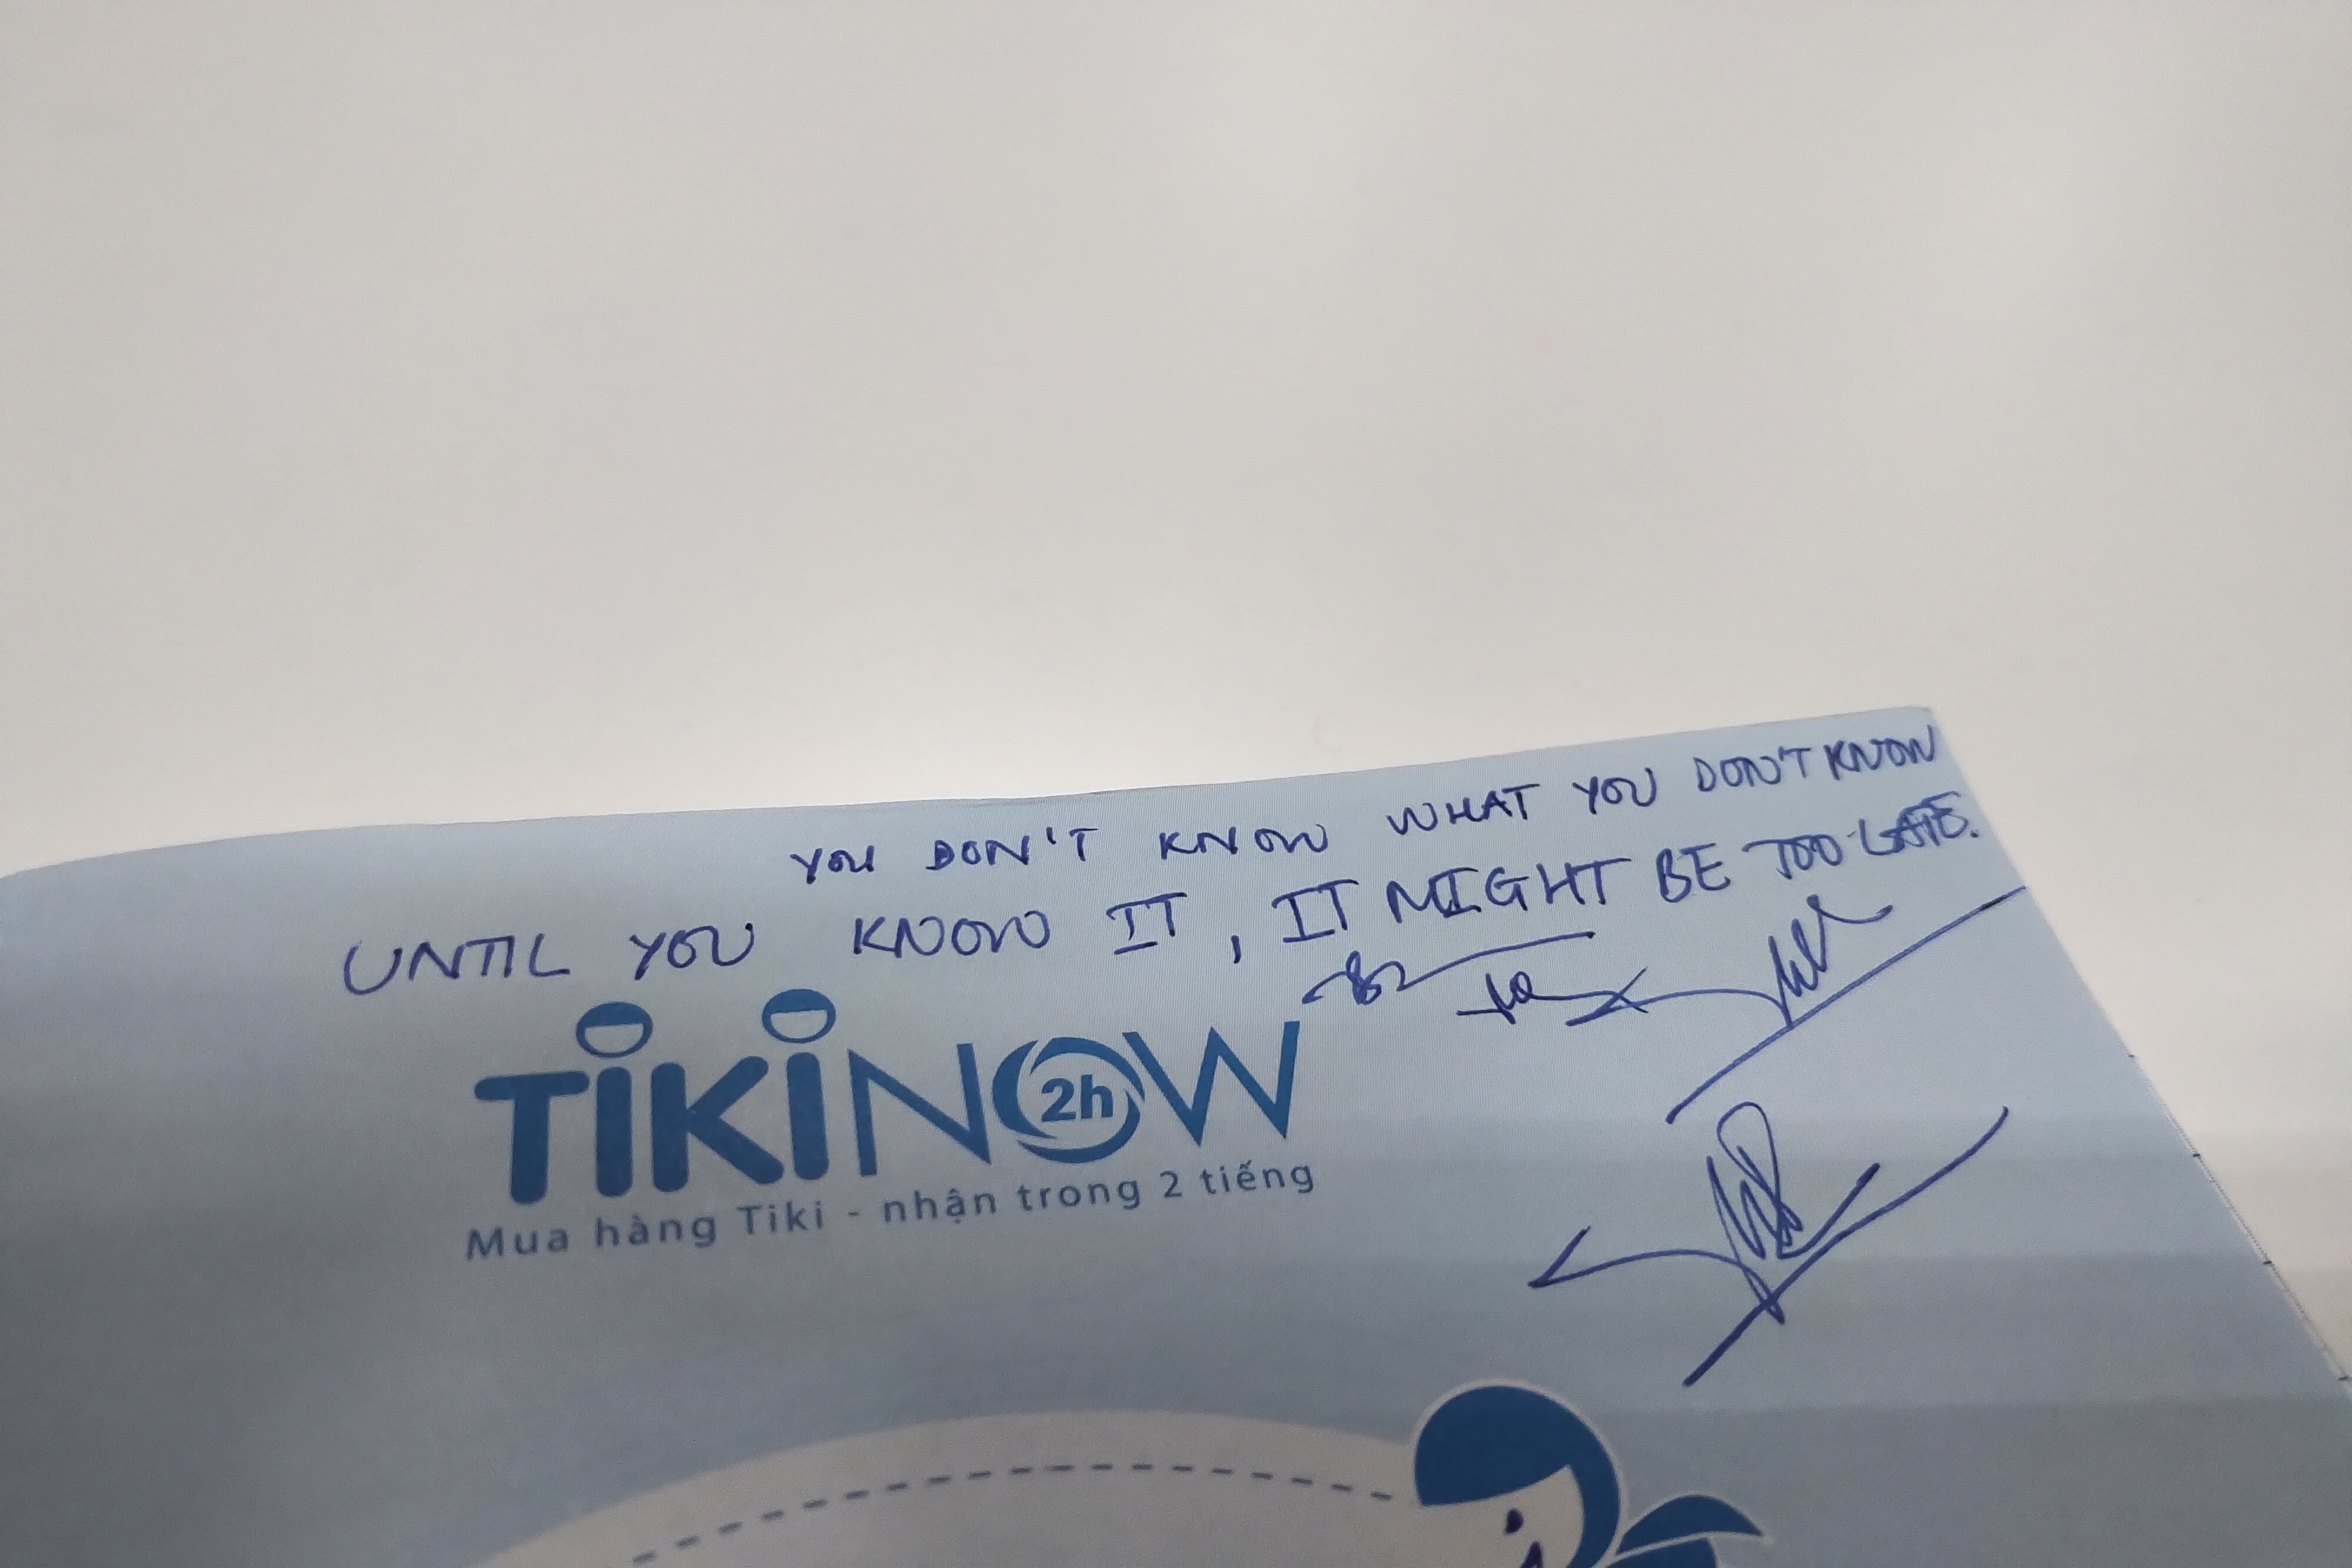 YOU DON'T KNOW WHAT YOU DON'T KNOW
UNTIL YOU KNOW IT, IT MIGHT BE TOO LATE.
TiKiNOW
2h
Mua hàng Tiki - nhận trong 2 tiếng